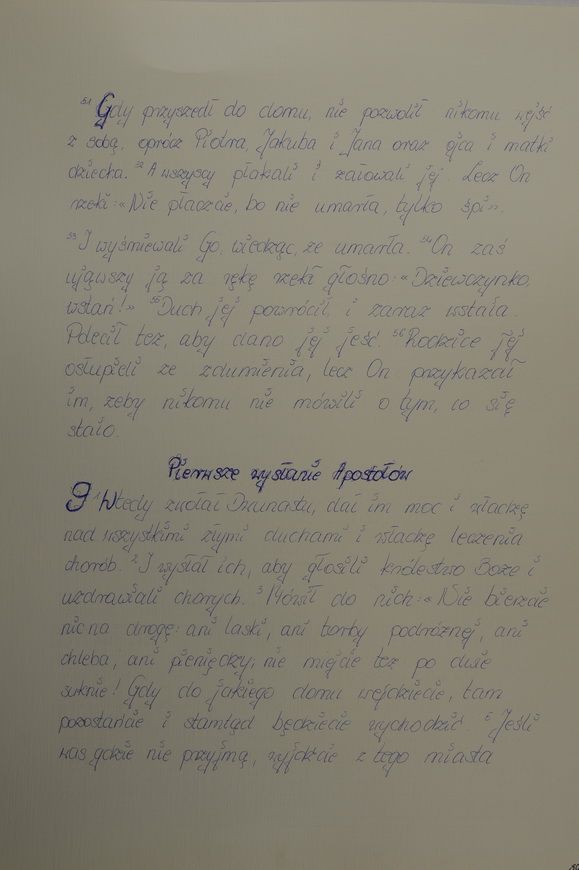 51 Gdy przyszedł do domu, nie pozwolił nikomu wejść
z sobą, oprócz Piotra, Jakuba i Jana oraz ojca i matki
dziecka. 52 A wszyscy płakali i żałowali jej. Lecz On
rzekł: «Nie płaczcie, bo nie umarła, tylko śpi».
53 I wyśmiewali Go, wiedząc, że umarła. 54 On zaś
ująwszy ją za rękę rzekł głośno: «Dziewczynko,
wstań!» 55 Duch jej powrócił, i zaraz wstała.
Polecił też, aby dano jej jeść. 56 Rodzice jej
osłupieli ze zdumienia, lecz On przykazał
im, żeby nikomu nie mówili o tym, co się
stało.
Pierwsze wysłanie Apostołów
9 1 Wtedy zwołał Dwunastu, dał im moc i władzę
nad wszystkimi złymi duchami i władzę leczenia
chorób. 2 I wysłał ich, aby głosili królestwo Boże i
uzdrawiali chorych. 3 Mówił do nich: «Nie bierzcie
nic na drogę: ani laski, ani torby podróżnej, ani
chleba, ani pieniędzy; nie miejcie też po dwie
suknie! Gdy do jakiego domu wejdziecie, tam
pozostańcie i stamtąd będziecie wychodzić. 5 Jeśli
was gdzie nie przyjmą, wyjdźcie z tego miasta